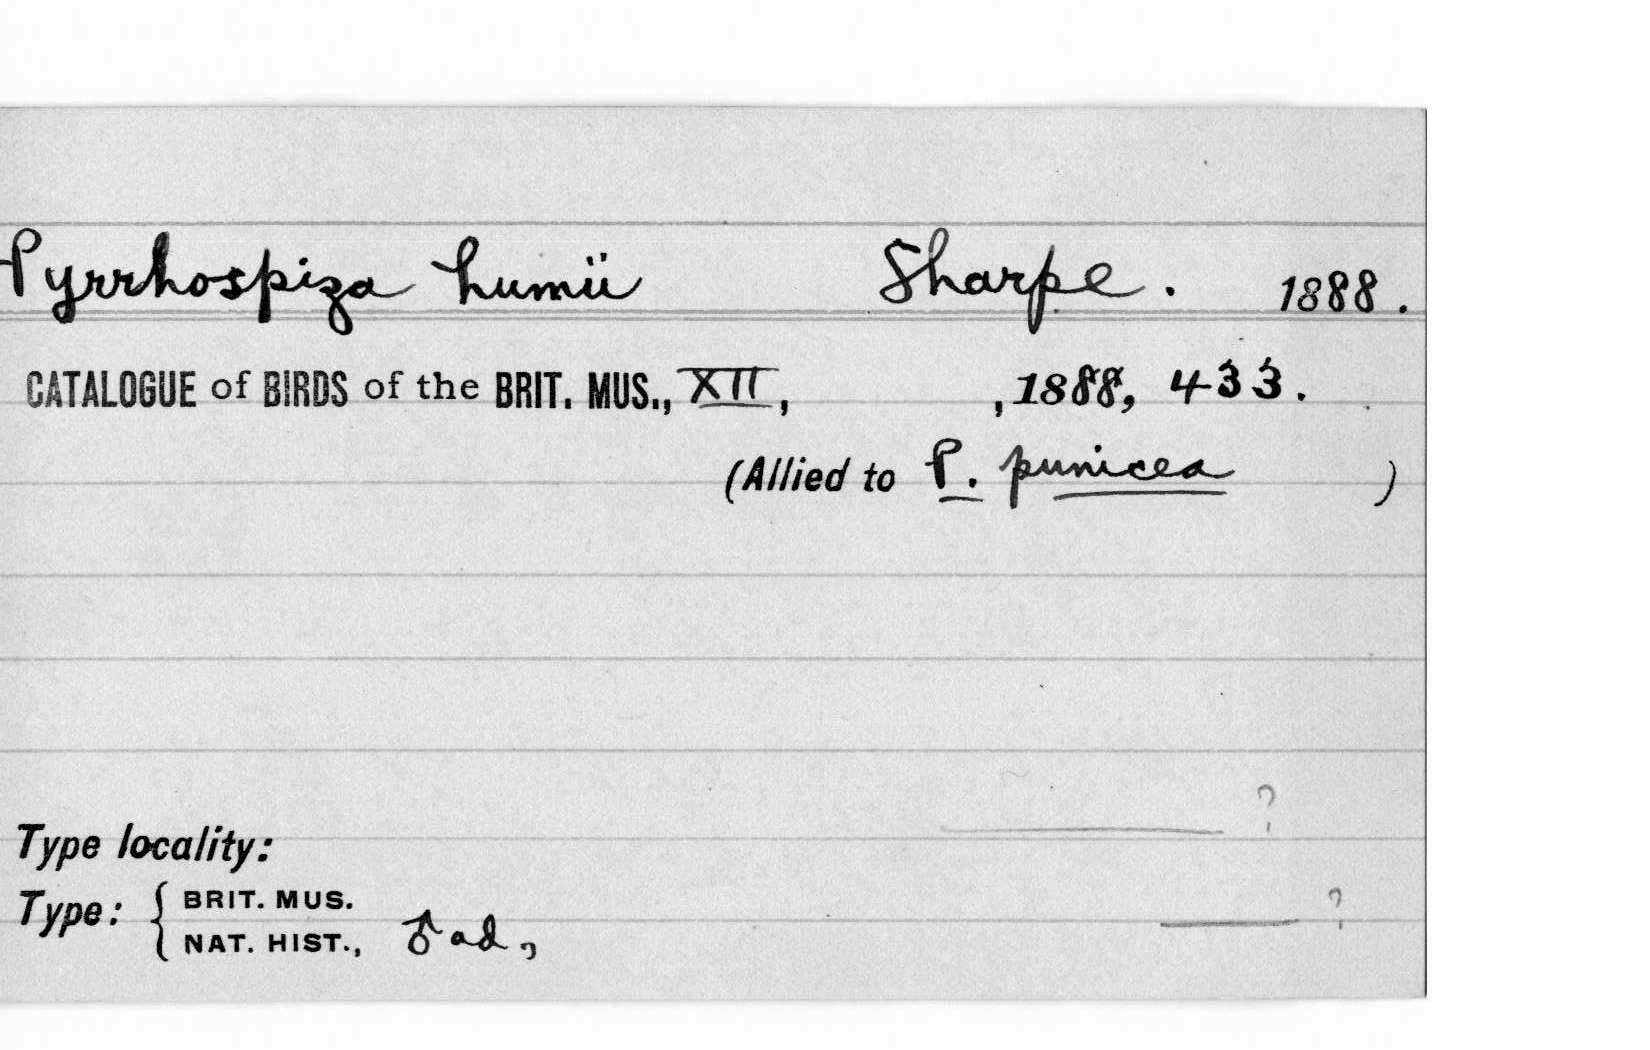 Pyrrhospiza humii Sharpe. 1888.
CATALOGUE of BIRDS of the BRIT. MUS., XII, , 1888, 433.
(Allied to P. punicea )
?
Type locality:
Type: { BRIT. MUS. ?
NAT. HIST., ♂ ad,